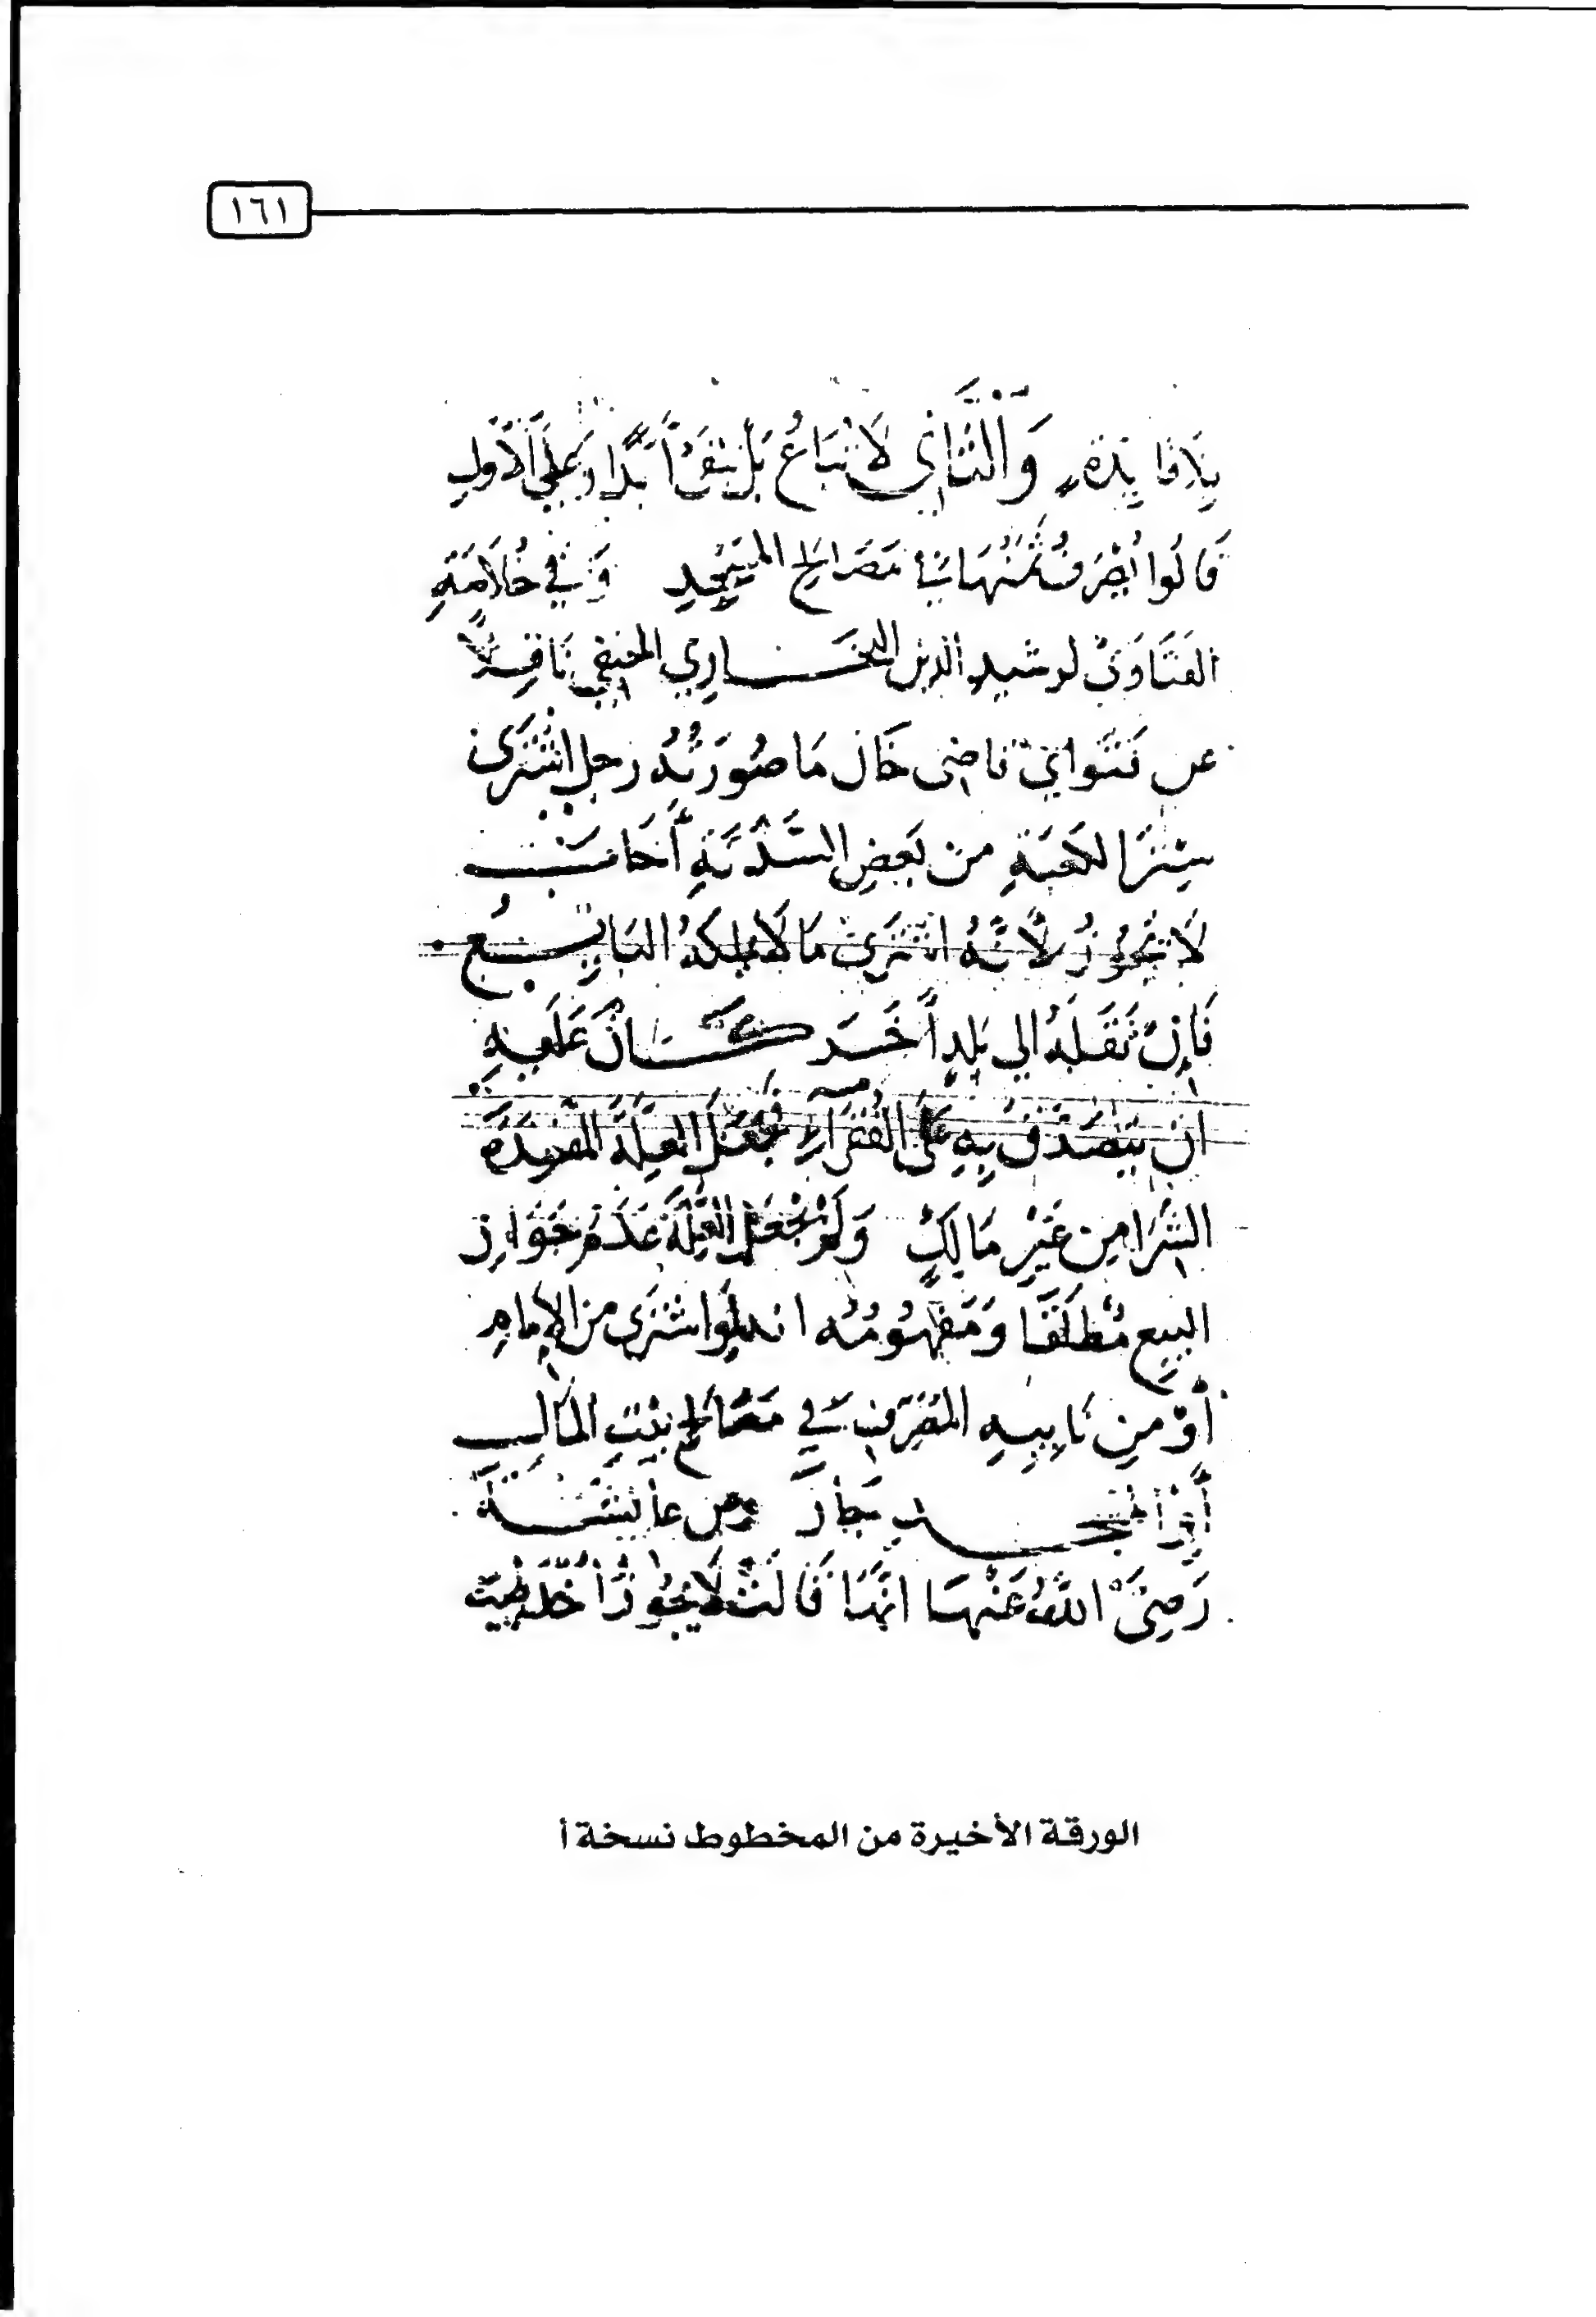 ١٦١
بِلَا فَايِدَةٍ وَالثَّانِي لَا تُبَاعُ بَلْ تَبْقَى أَبَدًا وَعَلَى الْأَوَّلِ
قَالُوا يُصْرَفُ ثَمَنُهَا فِي مَصَالِحِ الْمَسْجِدِ وَفِي خُلَاصَةِ
الفَتَاوَى لرشيد الدين البخاري الحنفي نَاقِلًا
عن فَتَاوَى قاضى خَان مَا صُورَتُهُ رجل اشْتَرَى
سِتْرَ الكَعْبَةِ من بَعْضِ السَّدَنَةِ أَجَابَ
لَا يَجُوزُ لِأَنَّهُ اشْتَرَى مَا لَا يملكهُ البَايِعُ
فَإِنْ نَقَلَهُ الي بَلدٍ أَخَر كَانَ عَلَيهِ
أن يَتَصَدَّقَ بِهِ عَلَى الفُقَرَآءِ فَجَعَلَ العِلَّةَ الْمُفسِدَةَ
الشِّرَا مِن غَيْرِ مَالِكٍ وَلَمْ يَجْعَلِ العِلَّةَ عَدَمَ جَوَازِ
البيع مُطلَقًا وَمَفهُومُهُ انه لَوِ اشْتَرَى من الإمامِ
أَوْ مِن نَايِبِهِ المُتَصَرِّفِ فِي مَصَالِحِ بَيْتِ المَالِ
جَازَ وعن عايشة
رَضِيَ اللَّهُ عَنْهَا انَّهَا قَالَتْ لَا يَجُوزُ أَخْذُ طِيبِ
الورقة الأخيرة من المخطوط نسخة أ